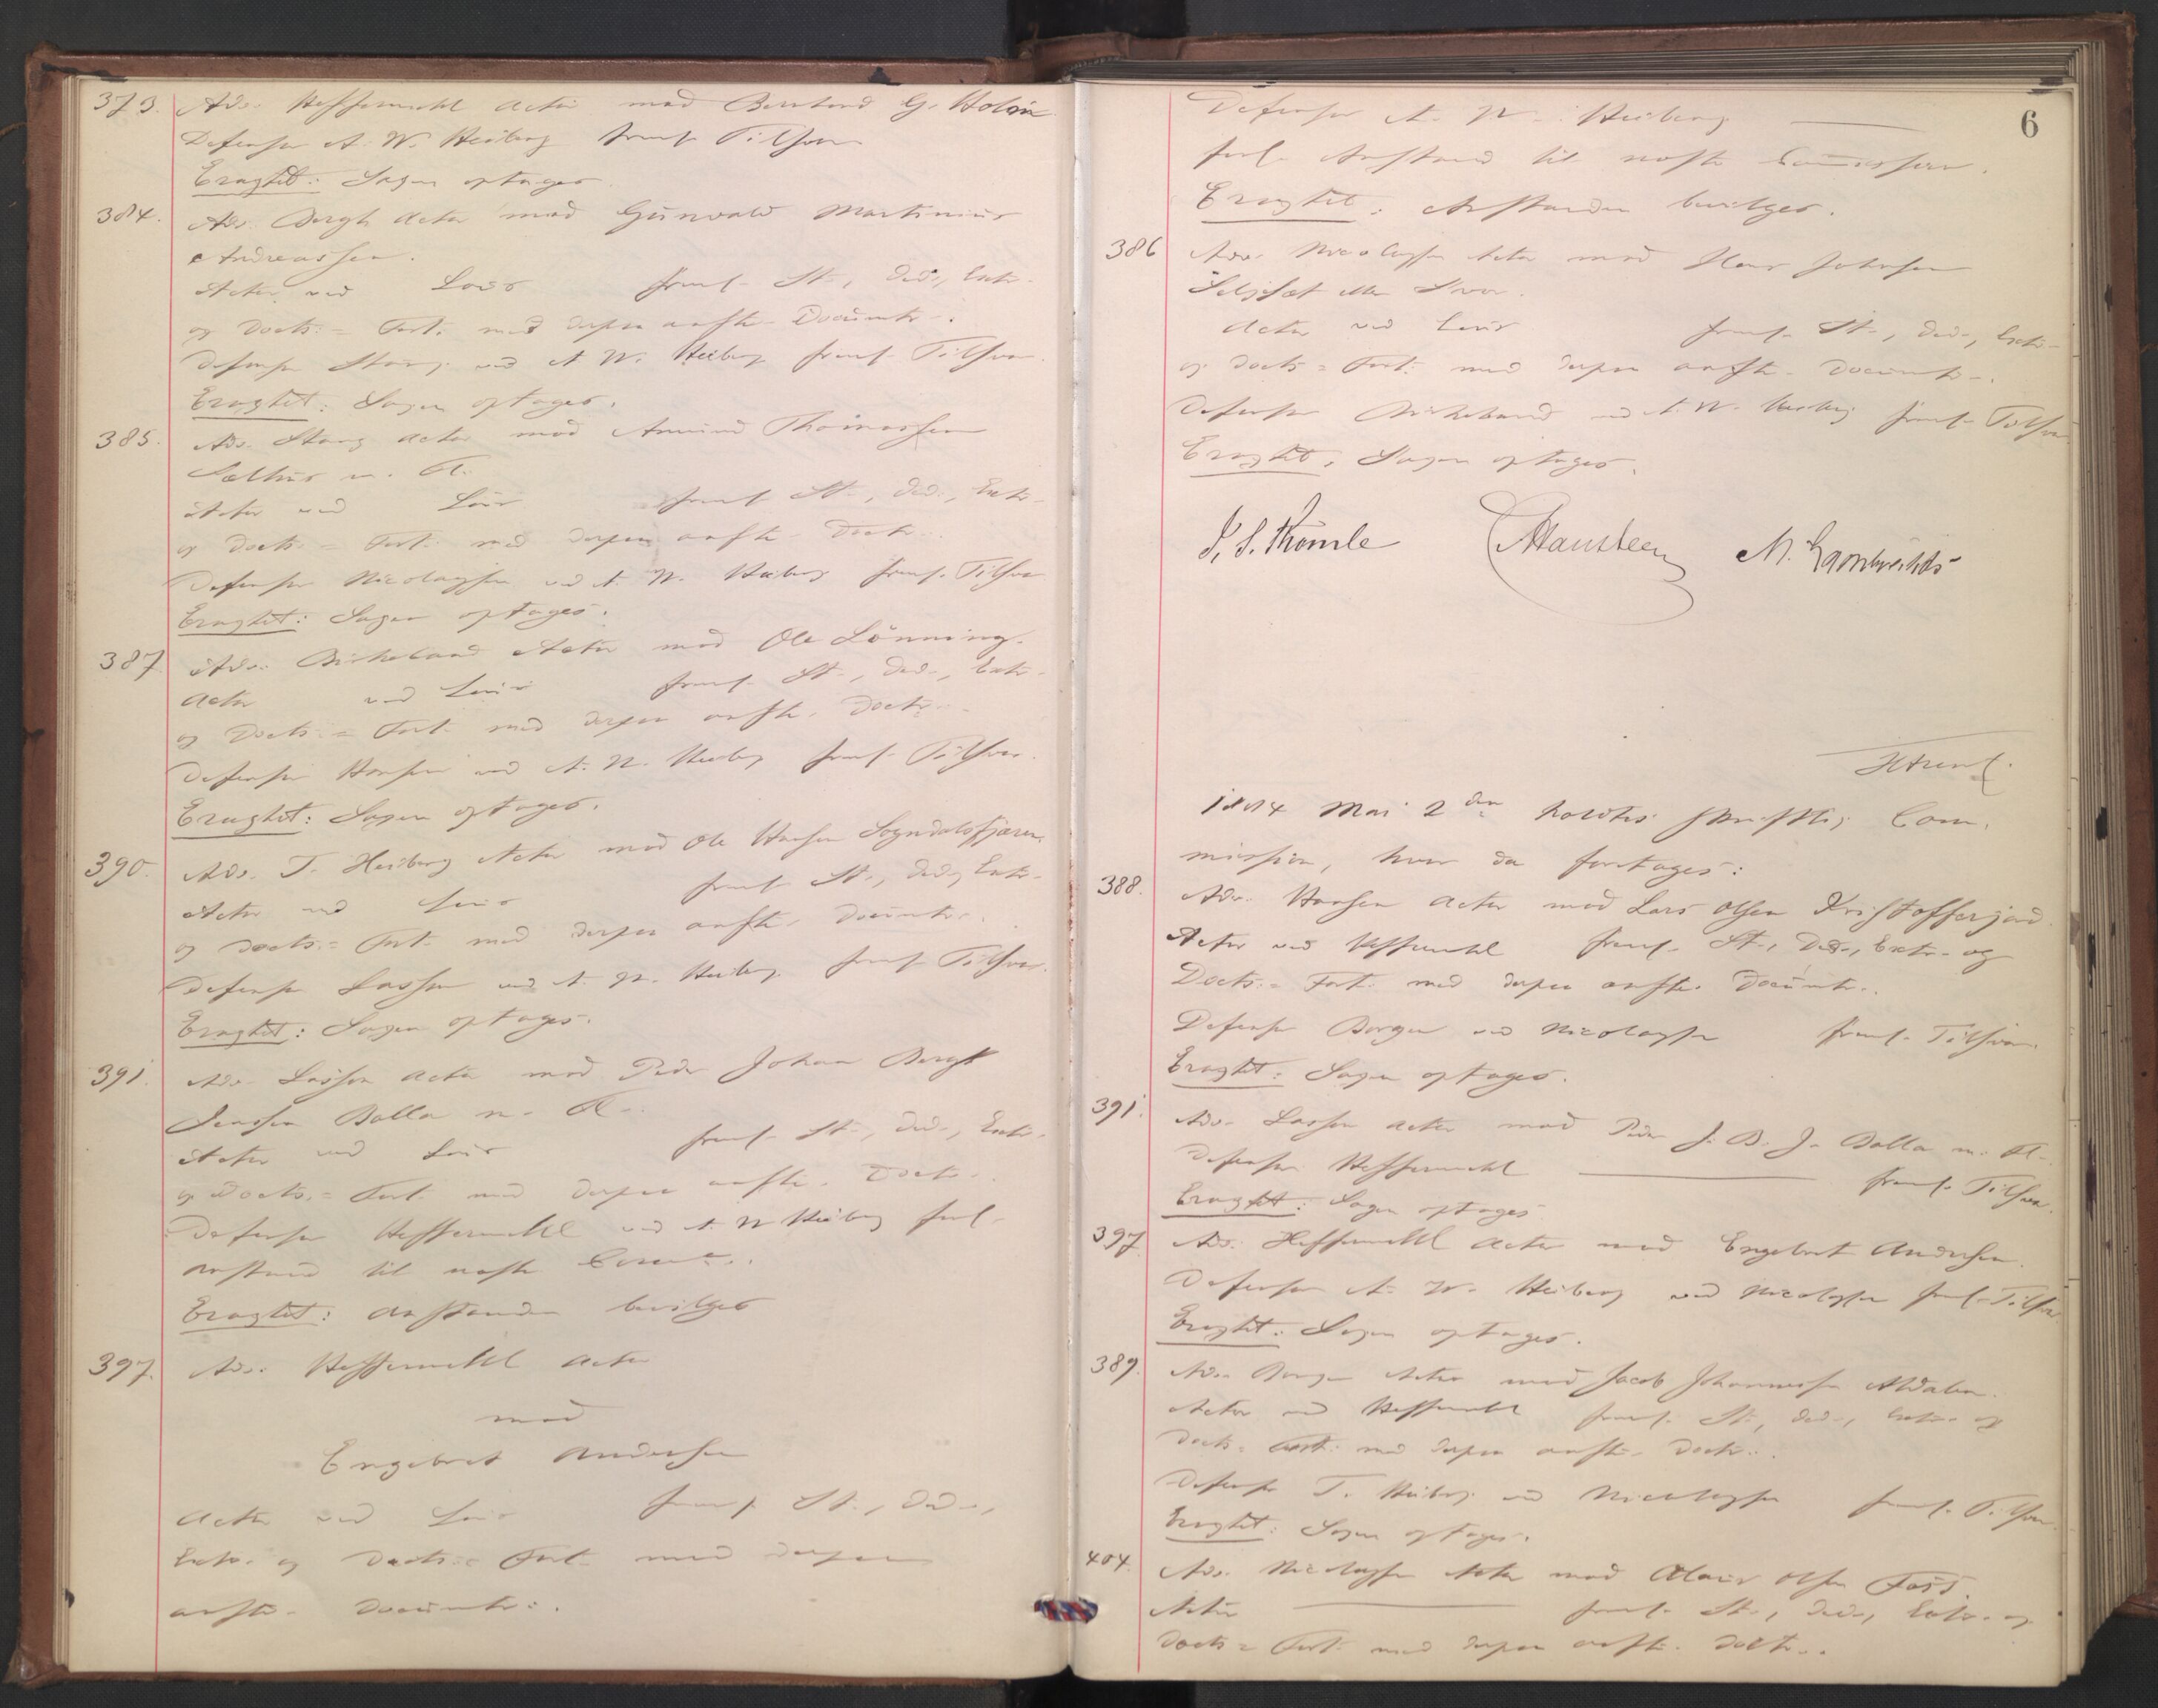 373. Adv. Heffermehl Actor mod Berntord G. Holm
Defensor A. W. Heiberg freml. Tilsvar.
Eragtet: Sagen optages.
384. Adv. Bergh Actor mod Gunvald Martinius
Andreassen.
Actor ved Lous freml. St., Ded., Extr.
og Docts. = Fort. med derpaa anførte Documtr.
Defensor Stang ved A. W. Heiberg freml. Tilsvar.
Eragtet: Sagen optages.
385. Adv. Stang Actor mod Amund Thomassen
Sælthus m. Fl.
Actor ved Lous freml. St., Ded., Extr.
og Docts. = Fort. med derpaa anførte Doctr.
Defensor Nicolaysen ved A. W. Heiberg freml. Tilsvar
Eragtet: Sagen optages.
387 Adv. Birkeland Actor mod Ole Lönning.
Actor ved Lous freml. St., Ded., Extr.
og Docts. = Fort. med derpaa anførte Doctr.
Defensor Hansen ved A. W. Heiberg freml. Tilsvar.
Eragtet: Sagen optages.
390. Adv. T. Heiberg Actor mod Ole Hansen Sogndalsfjæren.
Actor ved Lous freml. St., Ded., Extr.
og Docts. = Fort. med derpaa anførte Documtr.
Defensor Lasson ved A. W. Heiberg freml. Tilsvar.
Eragtet: Sagen optages.
391. Adv. Lasson Actor mod Peder Johan Bergh
Jenssen Balla m. Fl.
Actor ved Lous freml. St., Ded., Extr.
og Docts. = Fort. med derpaa anførte Doctr.
Defensor Heffermehl ved A. W. Heiberg forl.
Anstand til næste Comm.
Eragtet: Anstanden bevilges
397. Adv. Heffermehl Actor
mod
Engebret Andersen
Actor ved Lous freml. St., Ded.,
Extr. og Docts. = Fort. med derpaa
anførte Documtr.
6
Defensor A. W. Heiberg
forl. Anstand til næste Commission.
Eragtet: Anstanden bevilges.
386 Adv. Nicolaysen Actor mod Hans Johnsen
Seljesæt eller
Actor ved Lous freml. St., Ded., Extr.
og Docts. = Fort. med derpaa anførte Documtr.
Defensor Birkeland ved A. W. Heiberg freml. Tilsvar
Eragtet: Sagen optages.
P. S. Thomle Hansteen M. Lambrechts
1884 Mai 2den holdtes skriftlig Com-
mission, hvor da foretages:
388. Adv. Hansen Actor mod Lars Olsen Kristofferjord
Actor ved Heffermehl freml. St., Ded., Extr. og
Docts. = Fort. med derpaa anførte Documtr.
Defensor Borgen ved Nicolaysen freml. Tilsvar.
Eragtet: Sagen optages.
391. Adv. Lasson Actor mod Peder J. B. J. Balla m. Fl.
Defensor Heffermehl freml. Tilsvar.
Eragtet: Sagen optages
397 Adv. Heffermehl Actor mod Engebret Andersen.
Defensor A. W. Heiberg ved Nicolaysen freml. Tilsvar
Eragtet: Sagen optages.
389. Adv. Borgen Actor mod Jacob Johannessen Aldalen.
Actor ved Heffermehl freml. St., Ded., Extr. og
Docts. = Fort. med derpaa anførte Doctr.
Defensor T. Heiberg ved Nicolaysen freml. Tilsvar
Eragtet: Sagen optages.
404. Adv. Nicolaysen Actor mod Olaus Olsen Foss.
Actor freml. St., Ded., Extr. og
Docts. = Fort. med derpaa anførte Doctr.